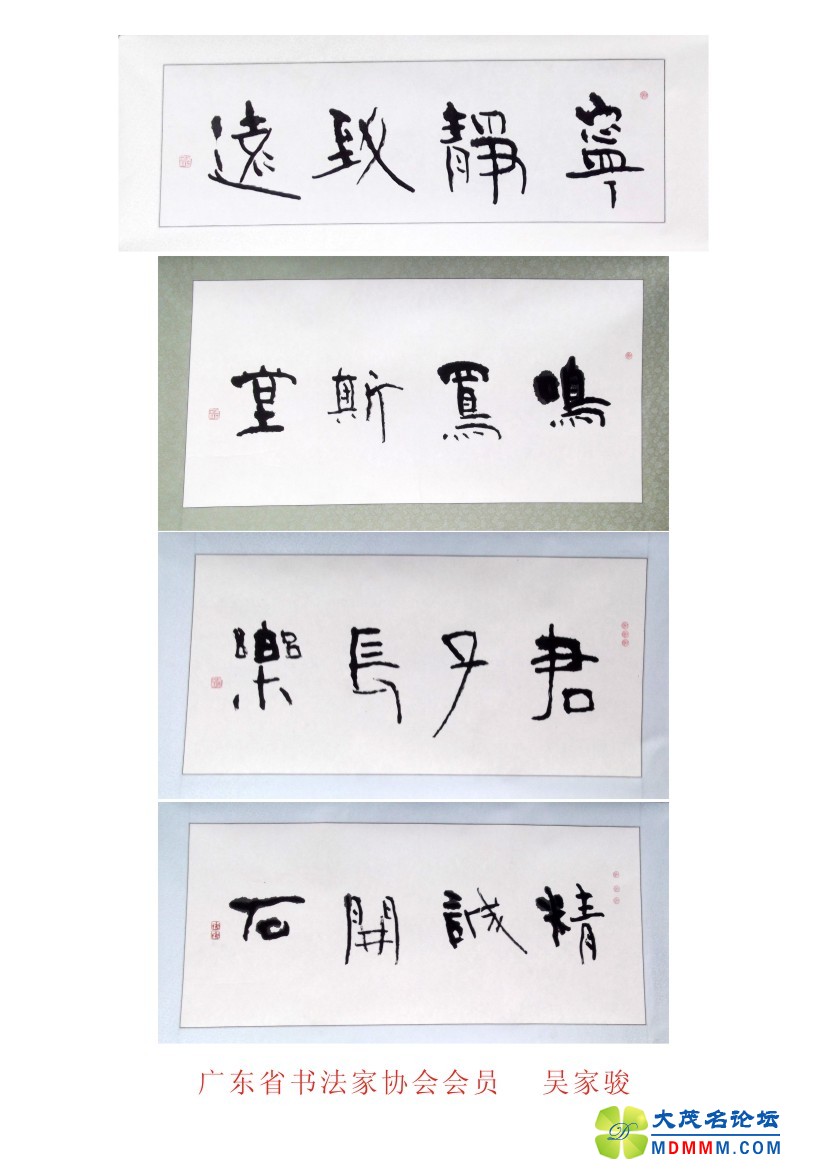 寧靜致遠
鳴斯堂
君子長樂
精誠開石
广东省书法家协会会员 吴家骏
大茂名论坛
MDMMM.COM